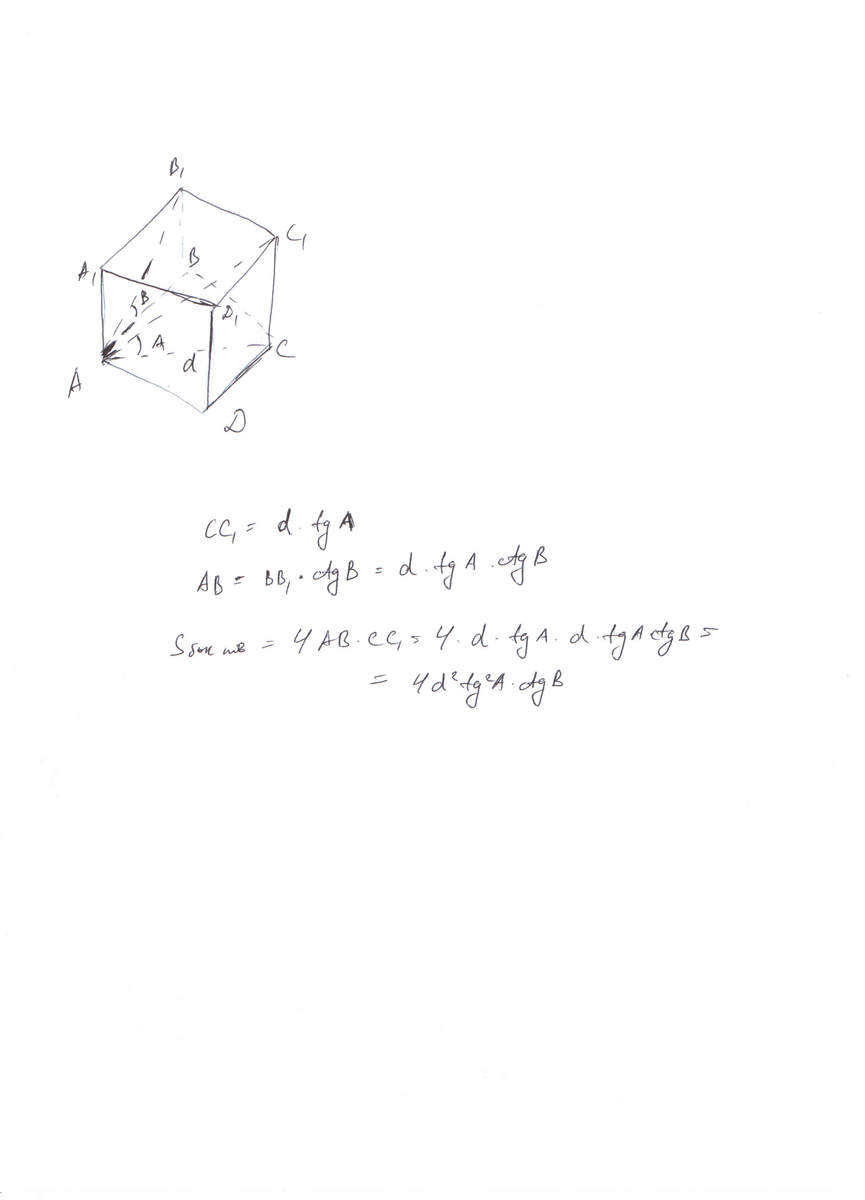 B₁
C₁
A₁
B
B
D₁
A
d
C
A
D
CC₁ = d · tg A
AB = BB₁ · ctg B = d · tg A · ctg B
S бок пов = 4 AB · CC₁ = 4 · d · tg A · d · tg A ctg B =
= 4d² tg²A · ctg B